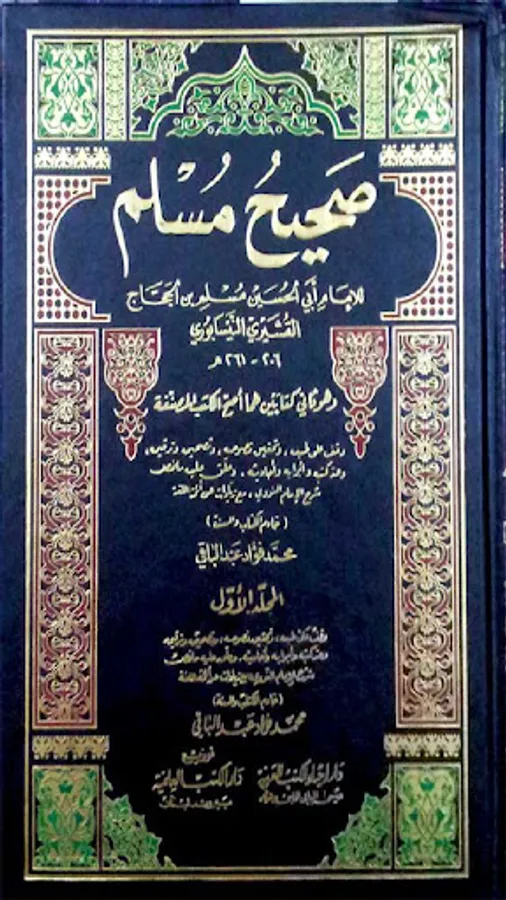 صَحِيحُ مُسْلِم
للإمَام أبي الحُسَين مُسْلِم بن الحَجَّاج
القُشَيْري النَّيْسَابُوري
٢٠٦ - ٢٦١ هـ
وهو ثاني كتابين هما أصح الكتب المصنفة
وقف على طبعه، وتحقيق نصوصه، وتصحيحه وترقيمه،
وعدّ كتبه وأبوابه وأحاديثه، وعلّق عليه ملخص
شرح الإمام النووي، مع زيادات عن أئمة اللغة
(خادم الكتاب والسنة)
محمد فؤاد عبد الباقي
المجلد الأول
(خادم الكتاب والسنة)
محمد فؤاد عبد الباقي
توزيع
دار إحياء الكتب العربية
دار الكتب العلمية